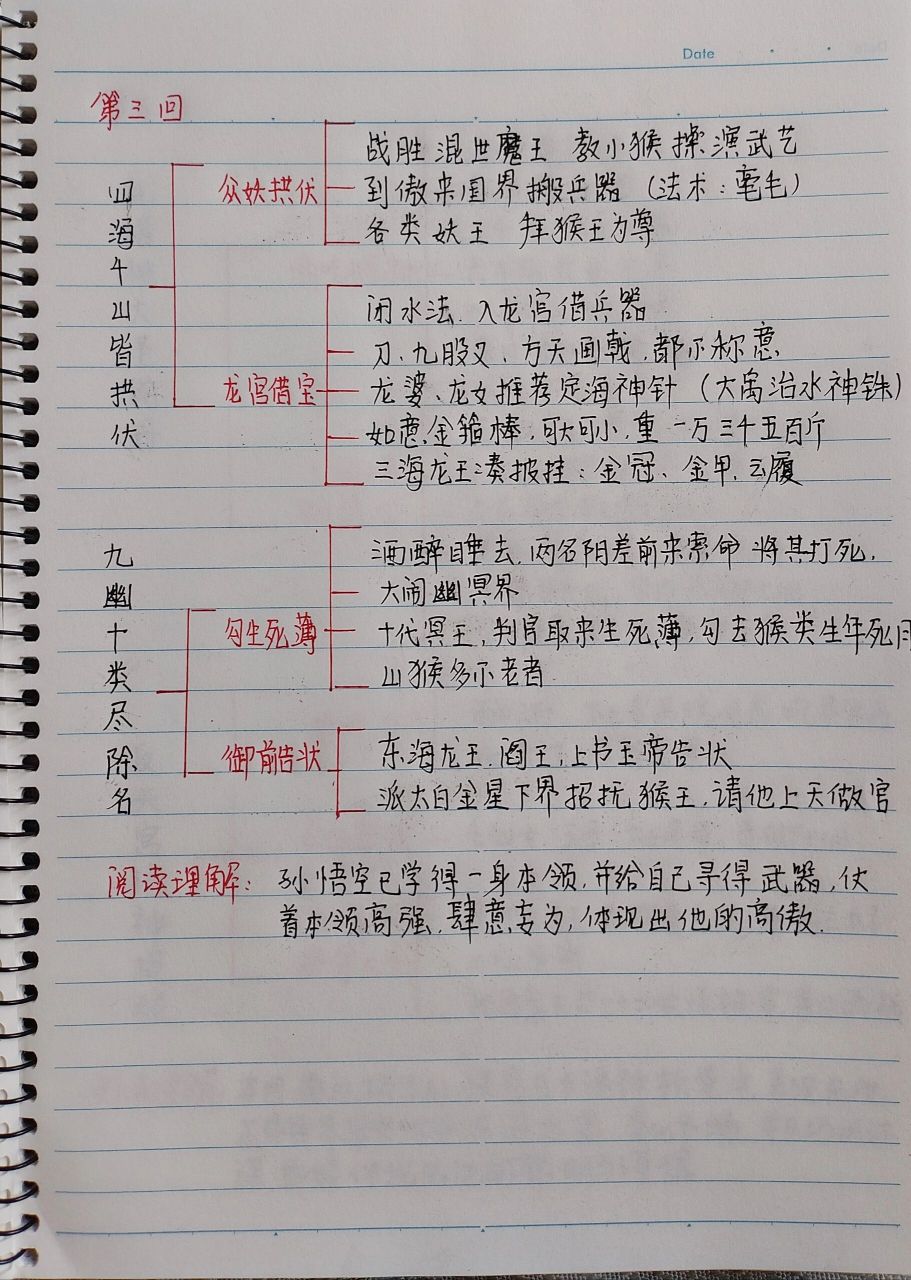 Date
第三回
四海千山皆拱伏
众妖拱伏
战胜混世魔王 教小猴操演武艺
到傲来国界搬兵器（法术：毫毛）
各类妖王 拜猴王为尊
龙宫借宝
闭水法、入龙宫借兵器
刀、九股叉、方天画戟，都不称意
龙婆、龙女推荐定海神针（大禹治水神铁）
如意金箍棒，可大可小，重一万三千五百斤
三海龙王凑披挂：金冠、金甲、云履
九幽十类尽除名
勾生死薄
酒醉睡去，两名阴差前来索命 将其打死，
大闹幽冥界
十代冥王，判官取来生死薄，勾去猴类生年死
山猴多不老者
御前告状
东海龙王、阎王，上书玉帝告状
派太白金星下界招抚猴王，请他上天做官
阅读理解：孙悟空已学得一身本领，并给自己寻得武器，仗
着本领高强，肆意妄为，体现出他的高傲．